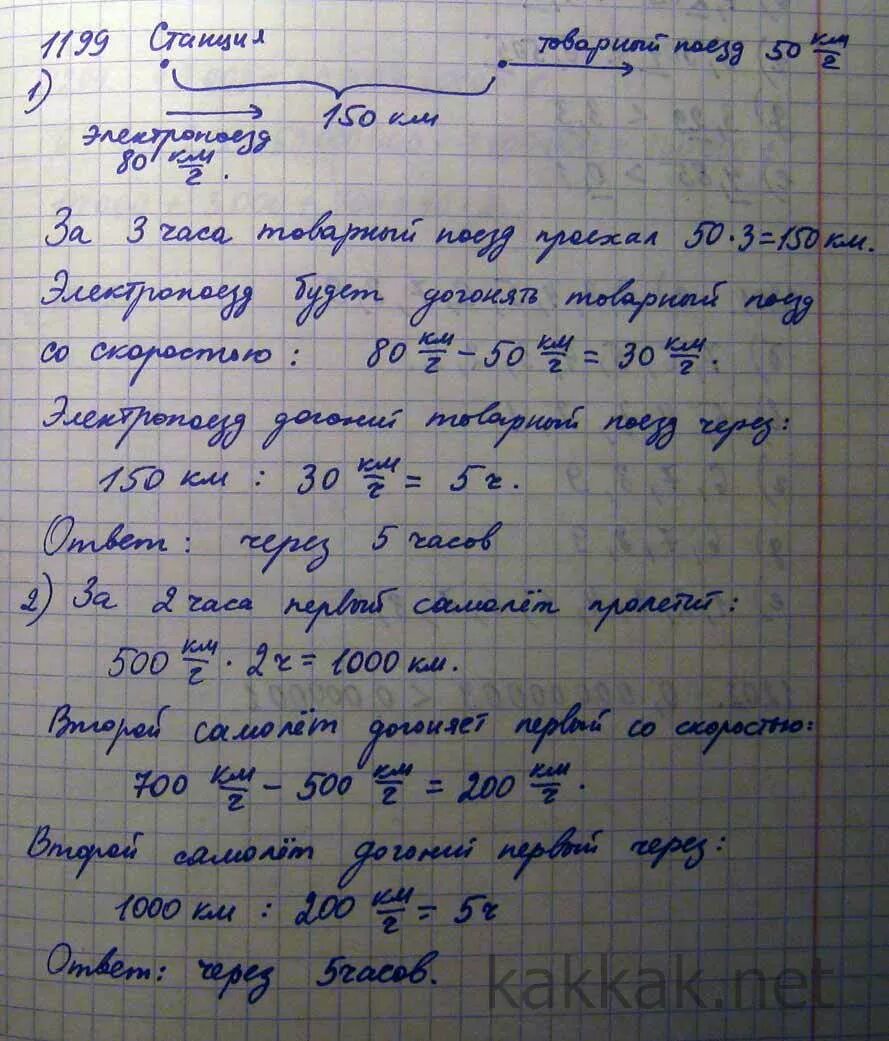 1199 Станция товарный поезд 50 км/г
1)
150 км
Электропоезд
80 км/г.
За 3 часа товарный поезд проехал 50·3=150 км.
Электропоезд будет догонять товарный поезд
со скоростью: 80 км/г − 50 км/г = 30 км/г.
Электропоезд догоний товарный поезд через:
150 км : 30 км/г = 5 ч.
Ответ: через 5 часов
2) За 2 часа первый самолёт пролетит:
500 км/г · 2ч = 1000 км.
Второй самолёт догоняет первый со скоростью:
700 км/г − 500 км/г = 200 км/г.
Второй самолёт догоний первый через:
1000 км : 200 км/г = 5ч
Ответ: через 5часов.
kakkak.net